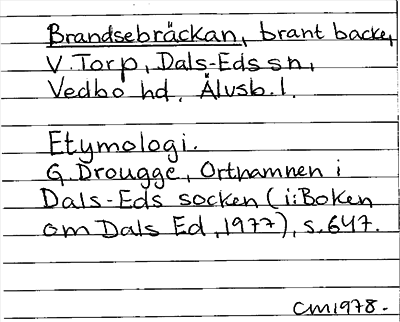 Brandsebräckan, brant backe,
V. Torp, Dals-Eds sn,
Vedbo hd. Älvsb. l.
Etymologi.
G Drougge, Ortnamnen i
Dals-Eds socken (i: Boken
om Dals Ed, 1977), s. 647.
CM1978.